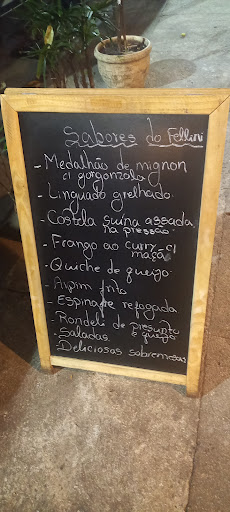 Sabores do Fellini
- Medalhão de mignon
c/ gorgonzola
- Linguado grelhado.
- Costela suína assada
na pressão
- Frango ao curry c/
maçã
- Quiche de queijo.
- Aipim frito
- Espinafre refogada
- Rondeli de presunto
e queijo
- Saladas.
- Deliciosas sobremesas